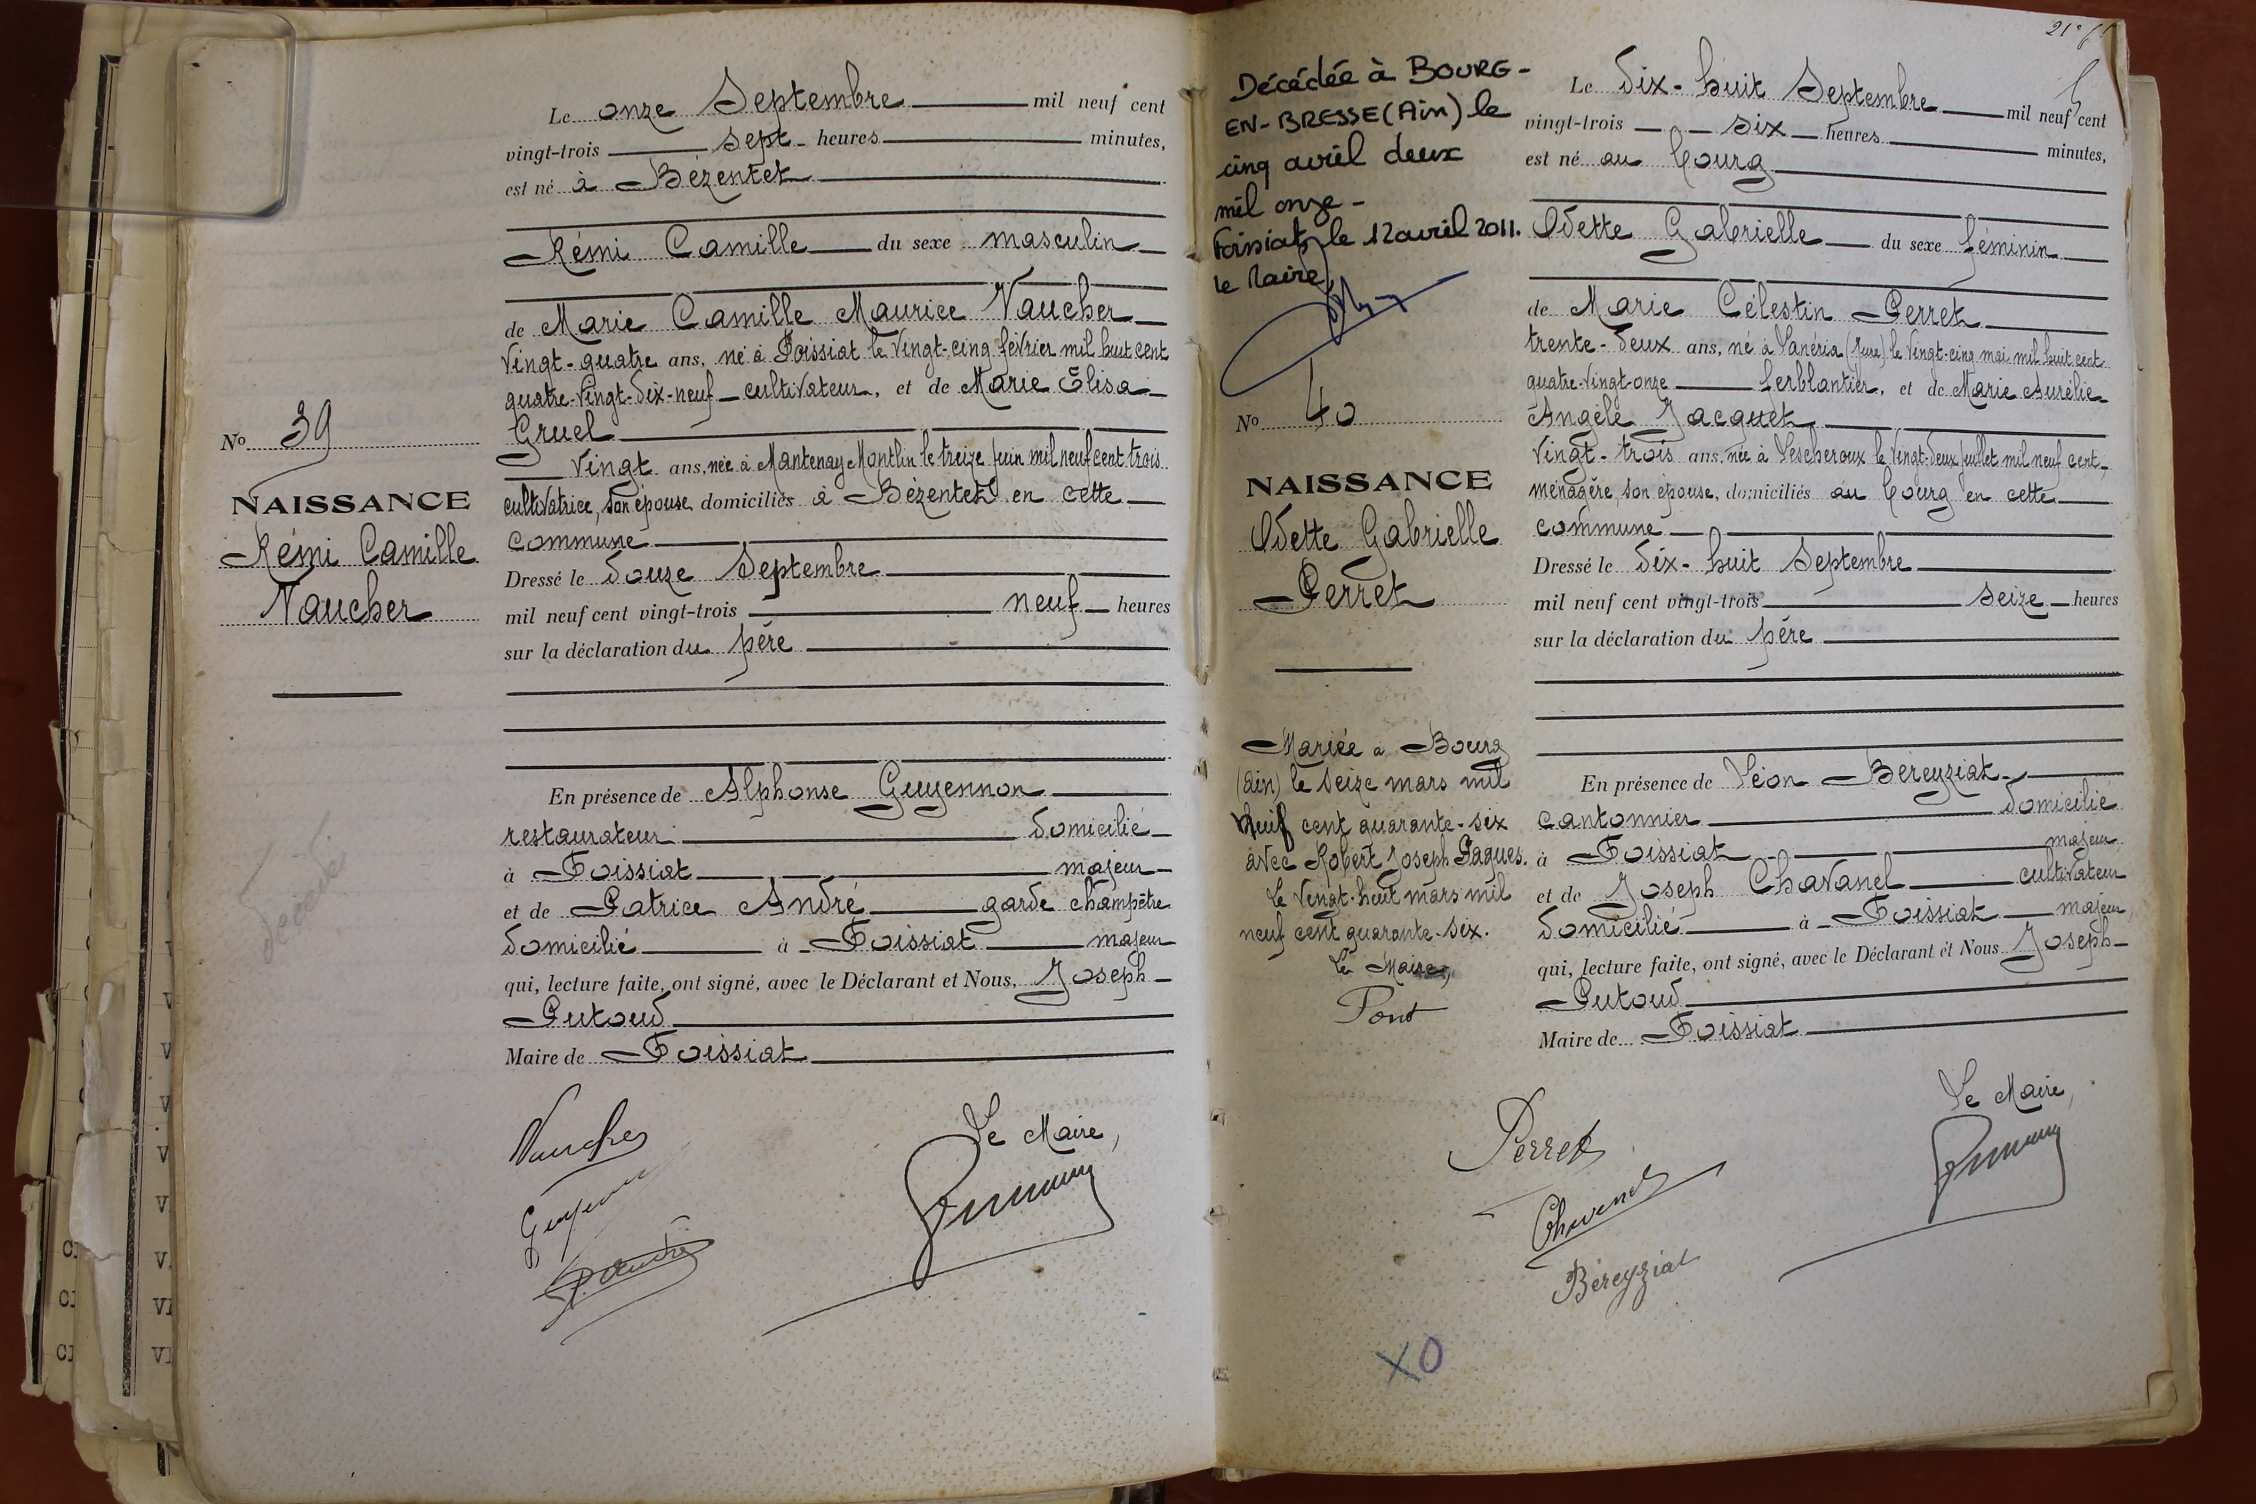 Le onze Septembre mil neuf cent
vingt-trois sept heures minutes,
est né à Bézentet
Rémi Camille du sexe masculin
de Marie Camille Maurice Vaucher
vingt-quatre ans, né à Foissiat le vingt-cinq février mil huit cent
quatre-vingt-dix-neuf cultivateur, et de Marie Élisa
Gruel
vingt ans, née à Mantenay Montlin le treize juin mil neuf cent trois
cultivatrice, son épouse domiciliés à Bézentet en cette
commune
Dressé le douze Septembre
mil neuf cent vingt-trois neuf heures
sur la déclaration du père
En présence de Alphonse Guyennon
restaurateur domicilié
à Foissiat majeur
et de Patrice André garde champêtre
domicilié à Foissiat majeur
qui, lecture faite, ont signé, avec le Déclarant et Nous, Joseph
Putoud
Maire de Foissiat
No 39
NAISSANCE
Rémi Camille
Vaucher
décédé
Vaucher
Guyennon
P. André
Le Maire,
Décédée à BOURG-
EN-BRESSE (Ain) le
cinq avril deux
mil onze -
Foissiat, le 12 avril 2011.
le Maire,
No 40
NAISSANCE
Odette Gabrielle
Perret
Mariée à Bourg
(Ain) le seize mars mil
neuf cent quarante-six
avec Robert Joseph Pagues.
le vingt-huit mars mil
neuf cent quarante-six.
Le Maire,
Pont
Le dix-huit Septembre mil neuf cent
vingt-trois six heures minutes,
est né au bourg
Odette Gabrielle du sexe féminin
de Marie Célestin Perret
trente-deux ans, né à Lanéria (Jura) le vingt-cinq mai mil huit cent
quatre-vingt-onze ferblantier, et de Marie Aurélie
Angèle Jacquet
vingt-trois ans, née à Lescheroux le vingt-deux juillet mil neuf cent
ménagère, son épouse, domiciliés au bourg en cette
commune
Dressé le dix-huit Septembre
mil neuf cent vingt-trois seize heures
sur la déclaration du père
En présence de Léon Béreyziat
cantonnier domicilié
à Foissiat majeur
et de Joseph Chavanel cultivateur
domicilié à Foissiat majeur,
qui, lecture faite, ont signé, avec le Déclarant et Nous Joseph
Putoud
Maire de Foissiat
Le Maire,
Perret
Chavanel
Béreyziat
XO